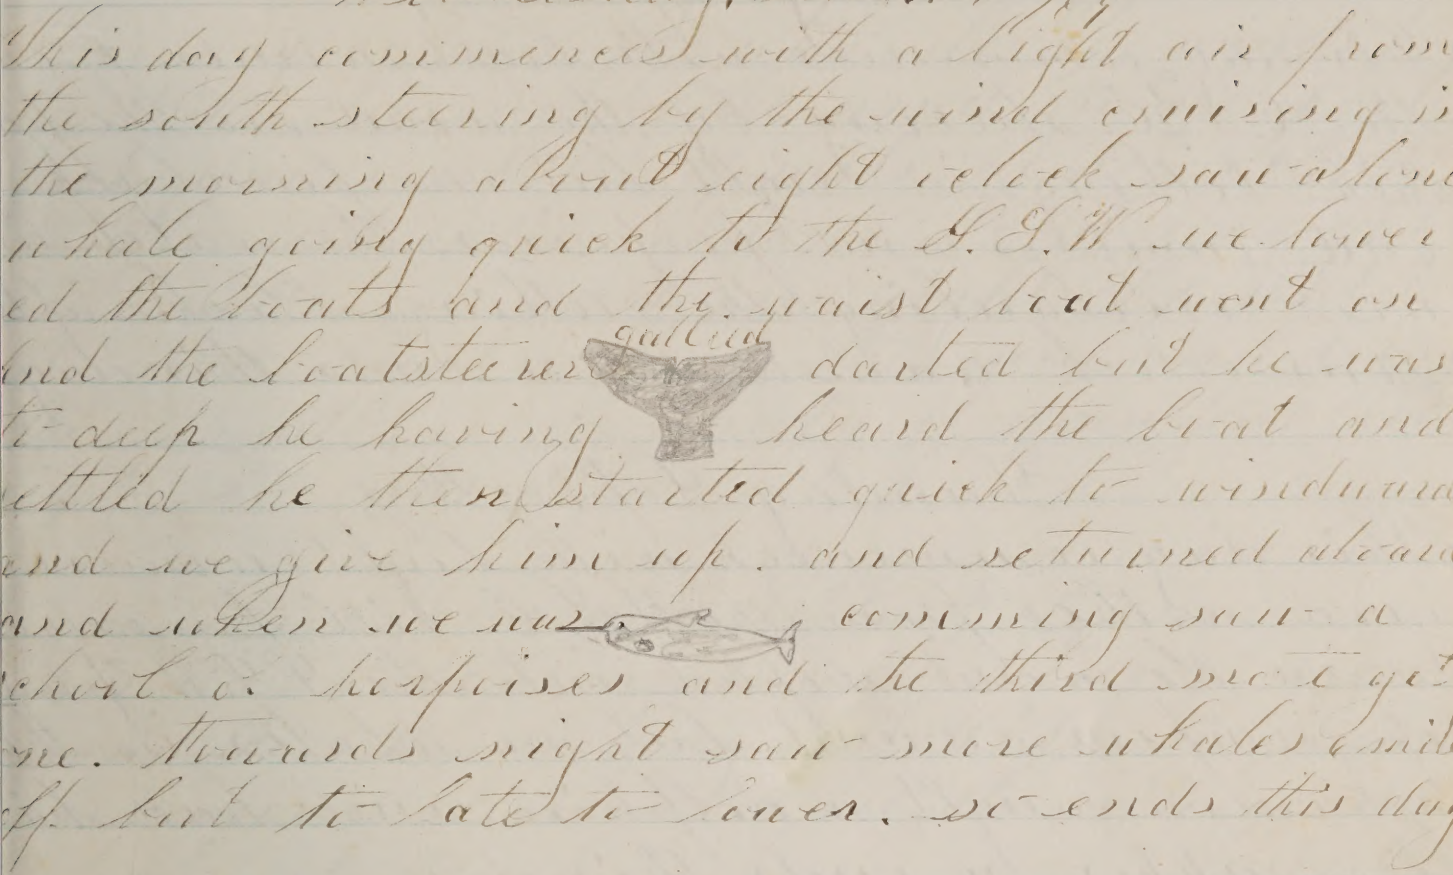 This day commences with a light air from
the south steering by the wind cruising in
the morning about eight oclock saw a lone
whale going quick to the S.S.W. we lower
ed the boats and the waist boat went on
and the boatsteerer darted but he was
gallied
to deep he having heard the boat and
settled he then started quick to windward
and we give him up. and returned aboard
and when we was comming saw a
school o. porpoises and the third mate get
one. towards night saw more whales
off but to late to lower. so ends this day